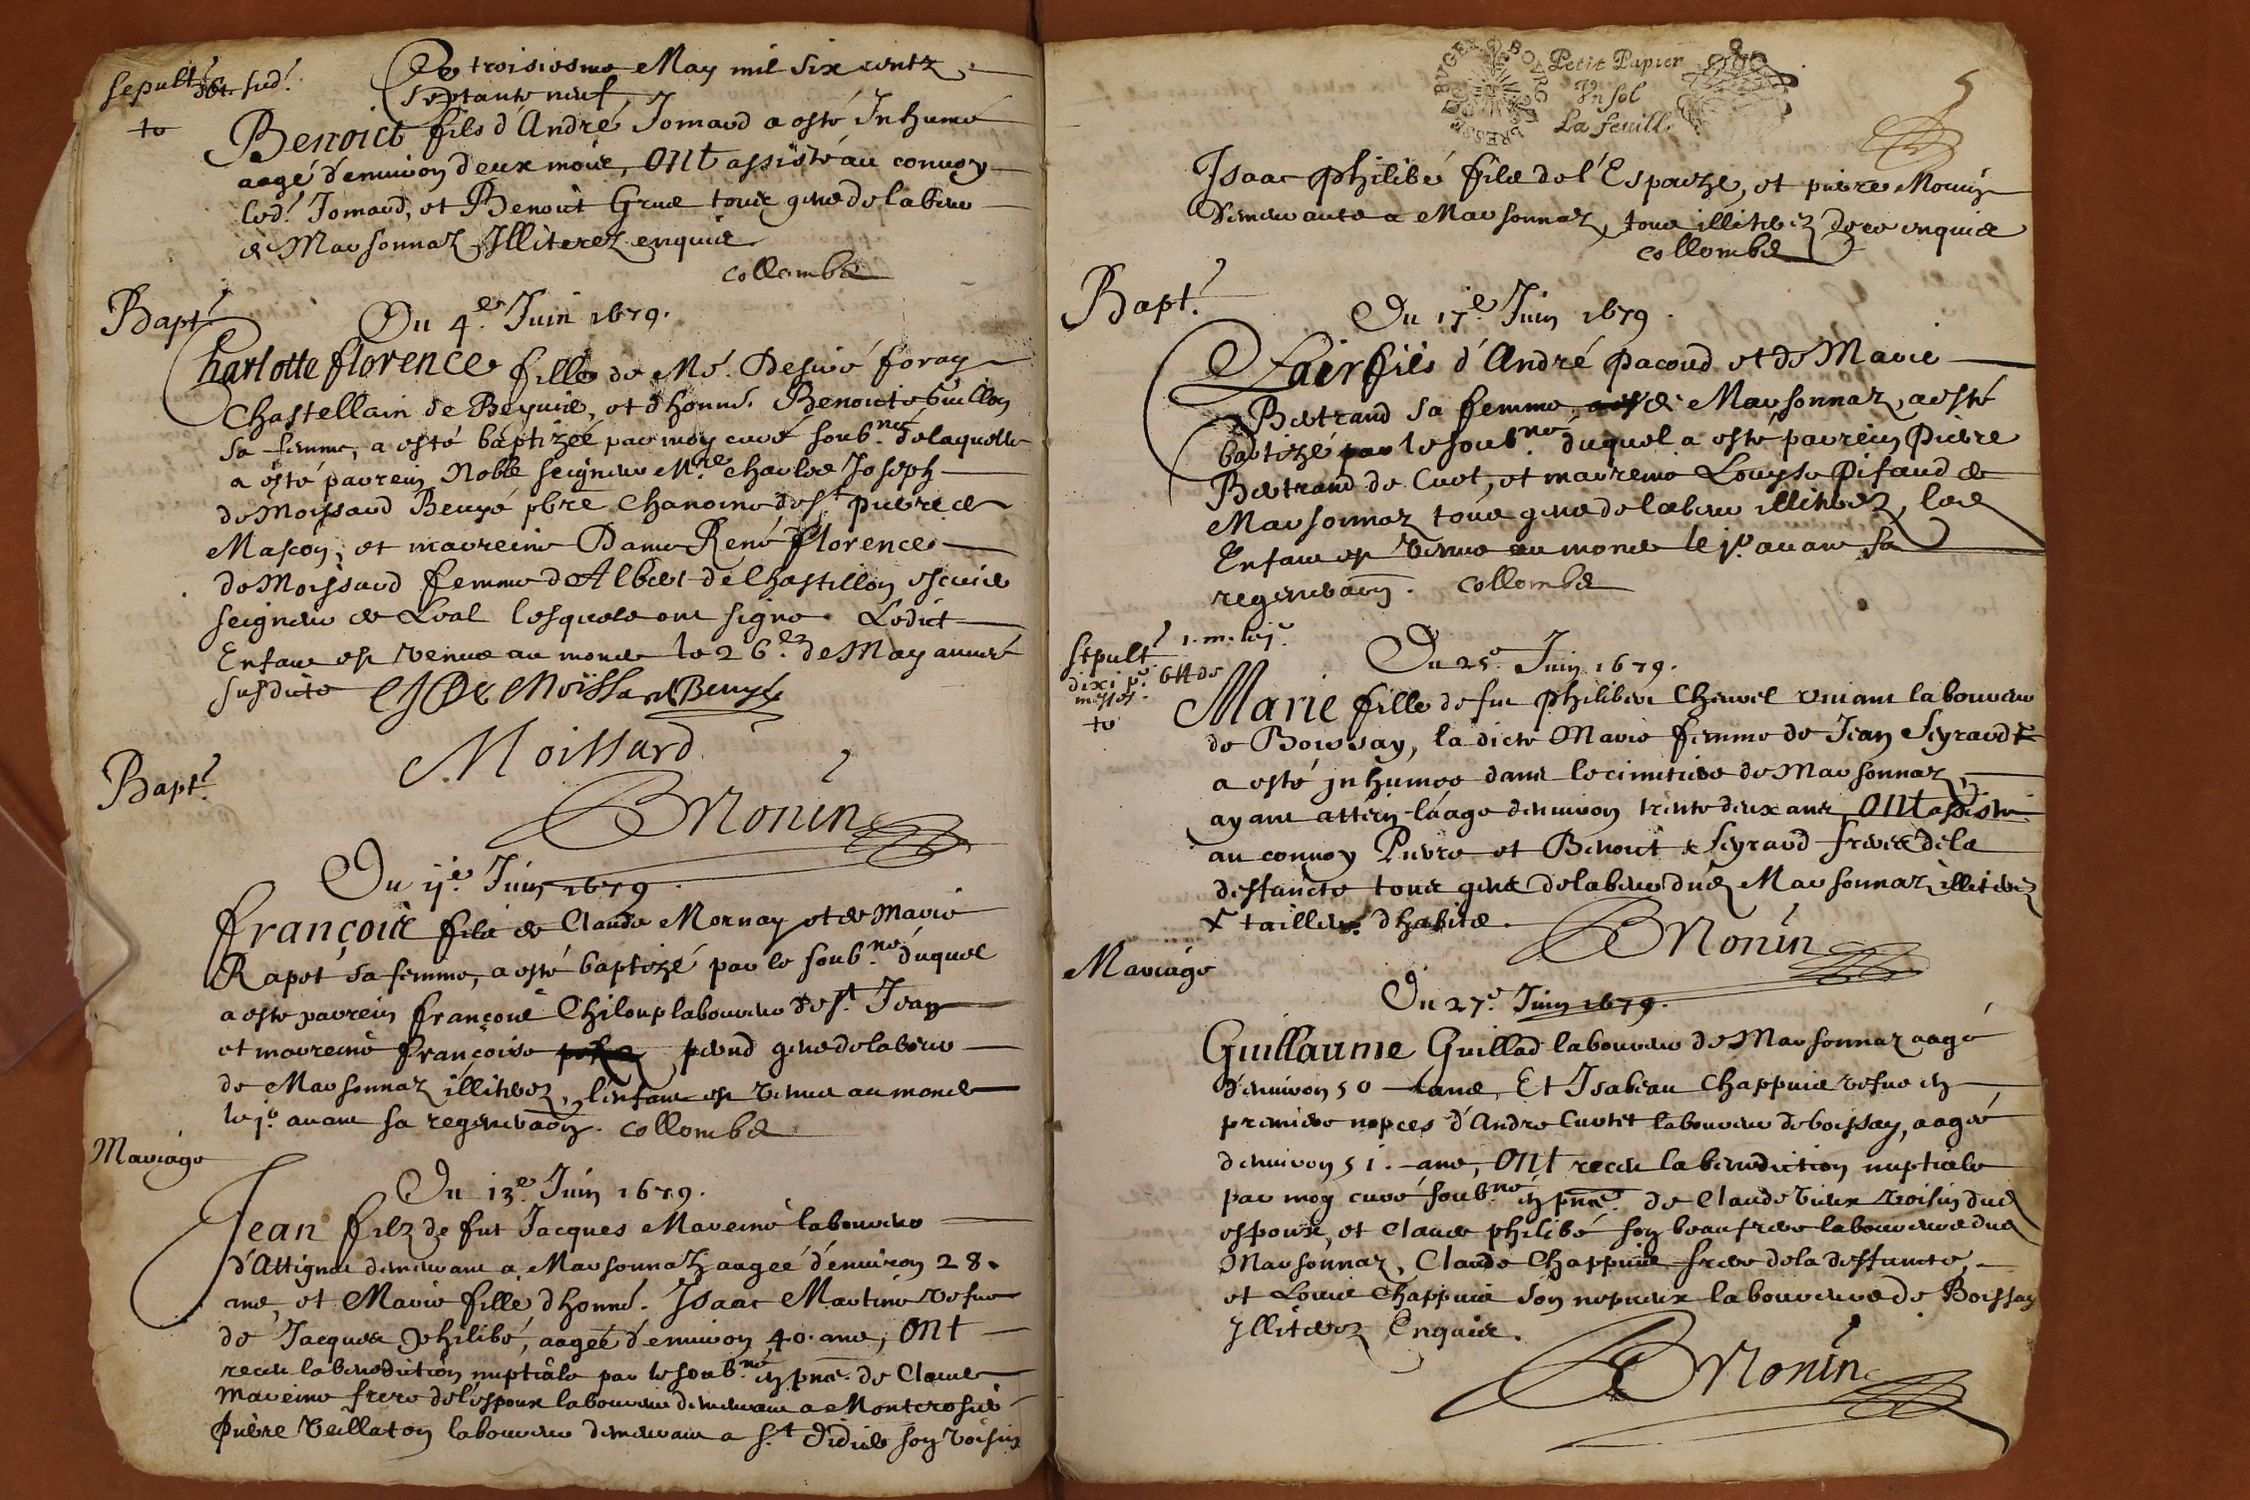 Sepult.e
to
Ce troisiesme May mil six centz
septante neuf
Benoict fils d'André Jomard a esté Inhumé
aagé d'environ deux mois, Ont assisté au convoy
led.t Jomard, et Benoict Grus tous gens de labeur
de Marsonnaz Illiterez enquis
Collombet
Bapt.e
Du 4.e Juin 1679.
Charlotte florence fille de Me. Desiré foray
Chastellain de Beyvie, et d'honne. Benoicte Guillon
sa femme, a esté baptizée par moy curé soub.né de laquelle
a esté parrein Noble seigneur M.re Charles Joseph
de Moyssard Beuyé pbre Chanoine de s.t pierre de
Mascon, et marreine Dame René florence
de Moissard femme d'Albert de Chastillon escuier
seigneur de Loal lesquels ont signe. Ledict
Enfant est venue au monde le 26.e de May année
susdicte De Moissard Beuyé
Moissard
BMonin
Bapt.e
Du 11.e Juin 1679.
françois fils de Claude Mornay et de Marie
Rapet sa femme, a esté baptizé par le soub.né duquel
a este parrein françois Chiloup laboureur de s.t Jean
et marreine françoise perud gens de labeur
de Marsonnaz illiterez, l'enfant est venue au monde
le jo. avant sa regeneraôn. Collombet
Mariage
Du 13.e Juin 1679.
Jean filz de fut Jacques Mareine laboureur
d'Attigna demeurant a Marsonnaz aageé d'environ 28.
ans, et Marie fille d'honne. Isaac Martine vefue
de Jacques philibé, aagée d'environ 40. ans, Ont
receu la benediction nuptiale par le soub.né en pnce. de Claude
Mareine frere de l'espoux laboureur demeurant a Montcrosier
pierre Veillaton laboureur demeurant a s.t Didier son voisin
BRESSE BUGEY BOURG
Petit Papier
Vn sol
La feuille
5
Isaac philibé fils de l'Espouze, et pierre Mouny
demeurants a Marsonnaz, tous illiterez de ce enquis
Collombet
Bapt.e
Du 17.e Juin 1679.
Clair fils d'André pacoud et de Marie
Bertrand sa femme, de Marsonnaz, a esté
baptizé par le soub.né duquel a esté parrein pierre
Bertrand de Cuet, et marreine Louyse Pifaud de
Marsonnaz tous gens de labeur illiterez, led.
Enfant est venue au monde le jo. avant sa
regeneraôn. Collombet
Sepult.e
to
Du 25.e Juin 1679.
Marie fille de fu philibert Chervel vivant laboureur
de Boissay, la dicte Marie femme de Jean Seyraud
a esté inhumee dans le cimitiere de Marsonnaz,
ayant attein l'aage d'environ trente deux ans, Ont assisté
au convoy Pierre et Benoict x Seyraud freres de la
deffuncte tous gens de labeur dud. Marsonnaz illiterez
x tailleur d'habits.
BMonin
Mariage
Du 27.e Juin 1679.
Guillaume Guillad laboureur de Marsonnaz aagé
d'environ 50 ans, Et Isabeau Chappuis vefue en
premiere nopces d'Andre Curtet laboureur de boissay, aagé
d'environ 51. ans, Ont receu la benediction nuptiale
par moy curé soub.né en pnce. de Claude vieux voisin dud.
espoux, et Claude philibé son beau frere laboureurs dud.
Marsonnaz, Claude Chappuis frere de la deffuncte,
et Louis Chappuis son nepvieux laboureurs de Boissay
Illiterez Enquis.
BMonin